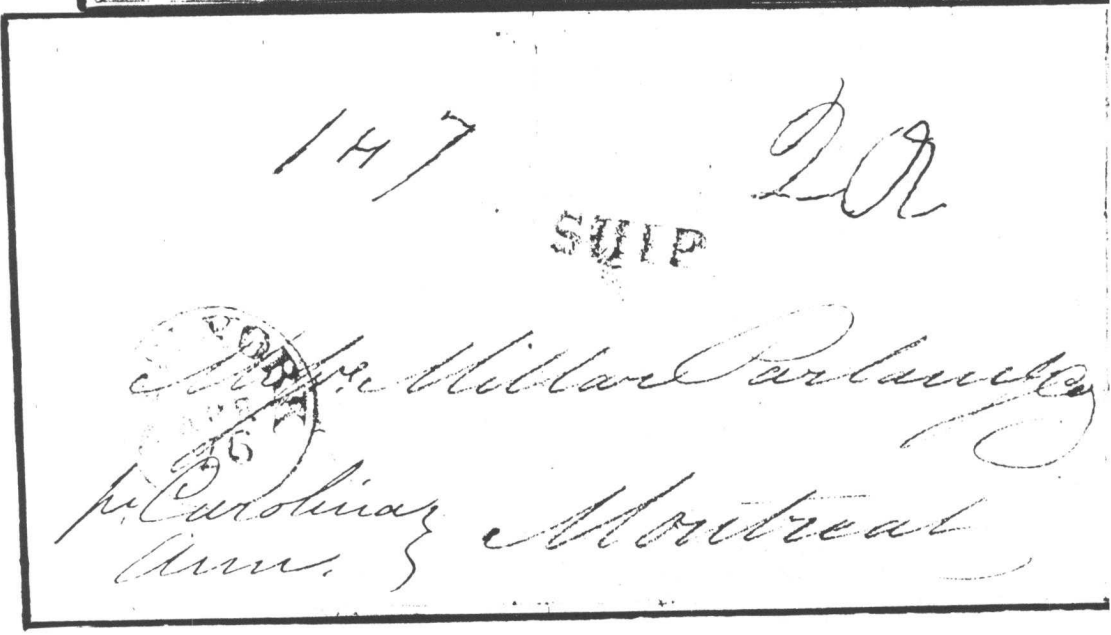 1 N 7
SHIP
YORK
Messrs. Millar Parlane & Co
pr. Carolina
Ann.
Montreal